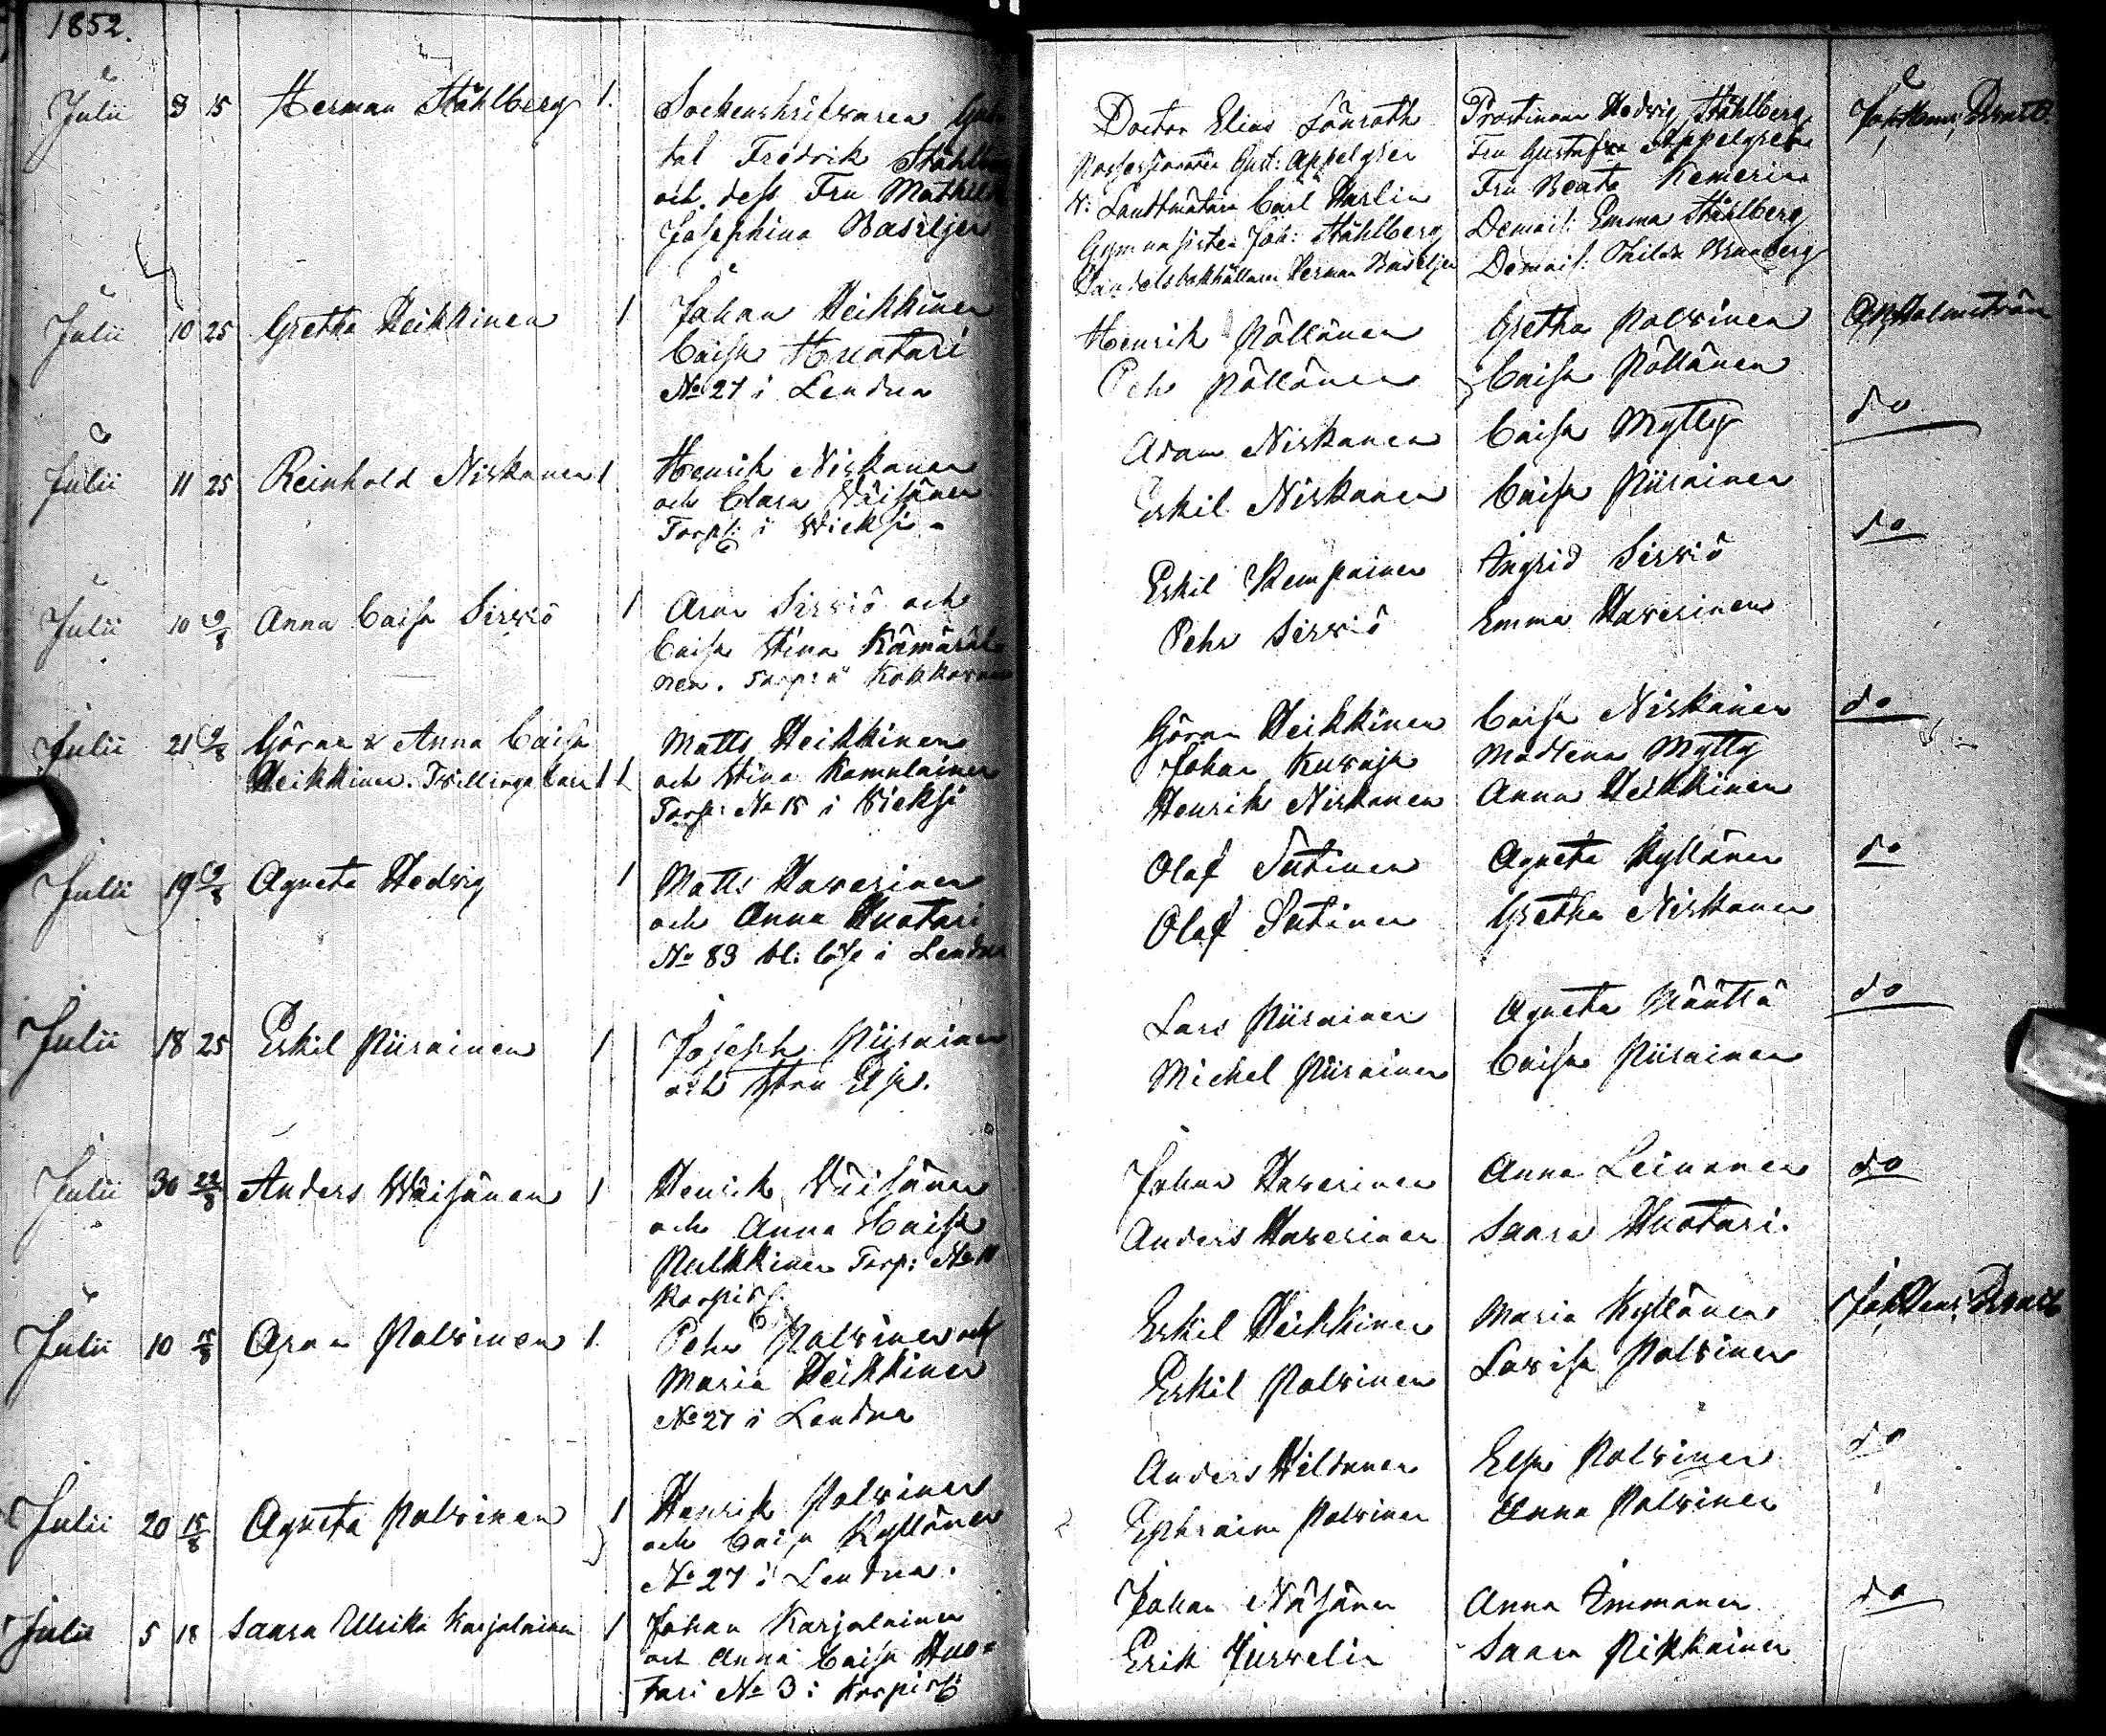 1852.
Julii 3 15 Herman Ståhlberg 1.
Sockenskrifvaren
Fredrik Ståhlberg
och dess Fru Mathilda
Josephina Basiljer
Doctor Elias Lönroth
Gust: Appelgren
V: Landtmätare Carl Harlin
Gymnasisten Joh: Ståhlberg
Handelsbokhållaren Herman Basiljer
Prostinnan Hedvig Ståhlberg
Fru Gustafva Appelgren
Fru Beata Kemerin
Demois: Emma Ståhlberg
Demois: Thilda Brunberg
Julii 10 25 Gretha Heikkinen 1
Johan Heikkinen
Caisa Huotari
No 27 i Lendua
Henrik Pöllänen
Pehr Pöllänen
Gretha Polvinen
Caisa Pöllänen
Julii 11 25 Reinhold Niskanen 1
Henrik Niskanen
och Clara Wäisänen
Torp: i Wieksi
Adam Niskanen
Eskil Niskanen
Caisa Mylly
Caisa Piirainen
do
Julii 10 9/8 Anna Caisa Sirviö 1
Aron Sirviö och
Caisa Stina Kämäräi-
nen. Torp: å
Eskil Kempainen
Pehr Sirviö
Ingrid Sirviö
Emma Haverinen
do
Julii 21 9/8 Göran & Anna Caisa
Heikkinen. Tvillinge barn 1 1
Matts Heikkinen
och Stina Komulainen
Torp: No 15 i Wieksi
Göran Heikkinen
Johan Kuvaja
Henrik Niskanen
Caisa Niskanen
Madlena Mylly
Anna Heikkinen
do
Julii 19 9/8 Agneta Hedvig 1
Matts Haverinen
och Anna Huotari
No 83 i Lendua
Olof Tutinen
Olof Tutinen
Agneta Kyllönen
Gretha Niskanen
do
Julii 18 25 Eskil Piirainen 1
Joseph Piirainen
och Hstru Elsa.
Lars Piirainen
Michel Piirainen
Agneta Määttä
Caisa Piirainen
do
Julii 30 22/8 Anders Wäisänen 1
Henrik Wäisänen
och Anna Caisa
Pulkkinen Torp: No 11
Korpis:
Johan Haverinen
Anders Haverinen
Anna Leinonen
Saara Huotari.
do
Julii 10 15/8 Aron Polvinen 1.
Pehr Polvinen och
Maria Heikkinen
No 27 i Lendua
Eskil Heikkinen
Eskil Polvinen
Maria Kyllönen
Lovisa Polvinen
Julii 20 15/8 Agneta Polvinen 1
Henrik Polvinen
och Caisa Kyllönen
No 27 i Lendua.
Anders Hiltunen
Ephraim Polvinen
Elsa Polvinen
Anna Polvinen
do
Julii 5 18 Saara Ulrika Karjalainen 1
Johan Karjalainen
och Anna Caisa Huo=
tari No 3 i Korpis:
Johan Näsänen
Erik Jurvelin
Anna Immonen
Saara Pikkainen
do